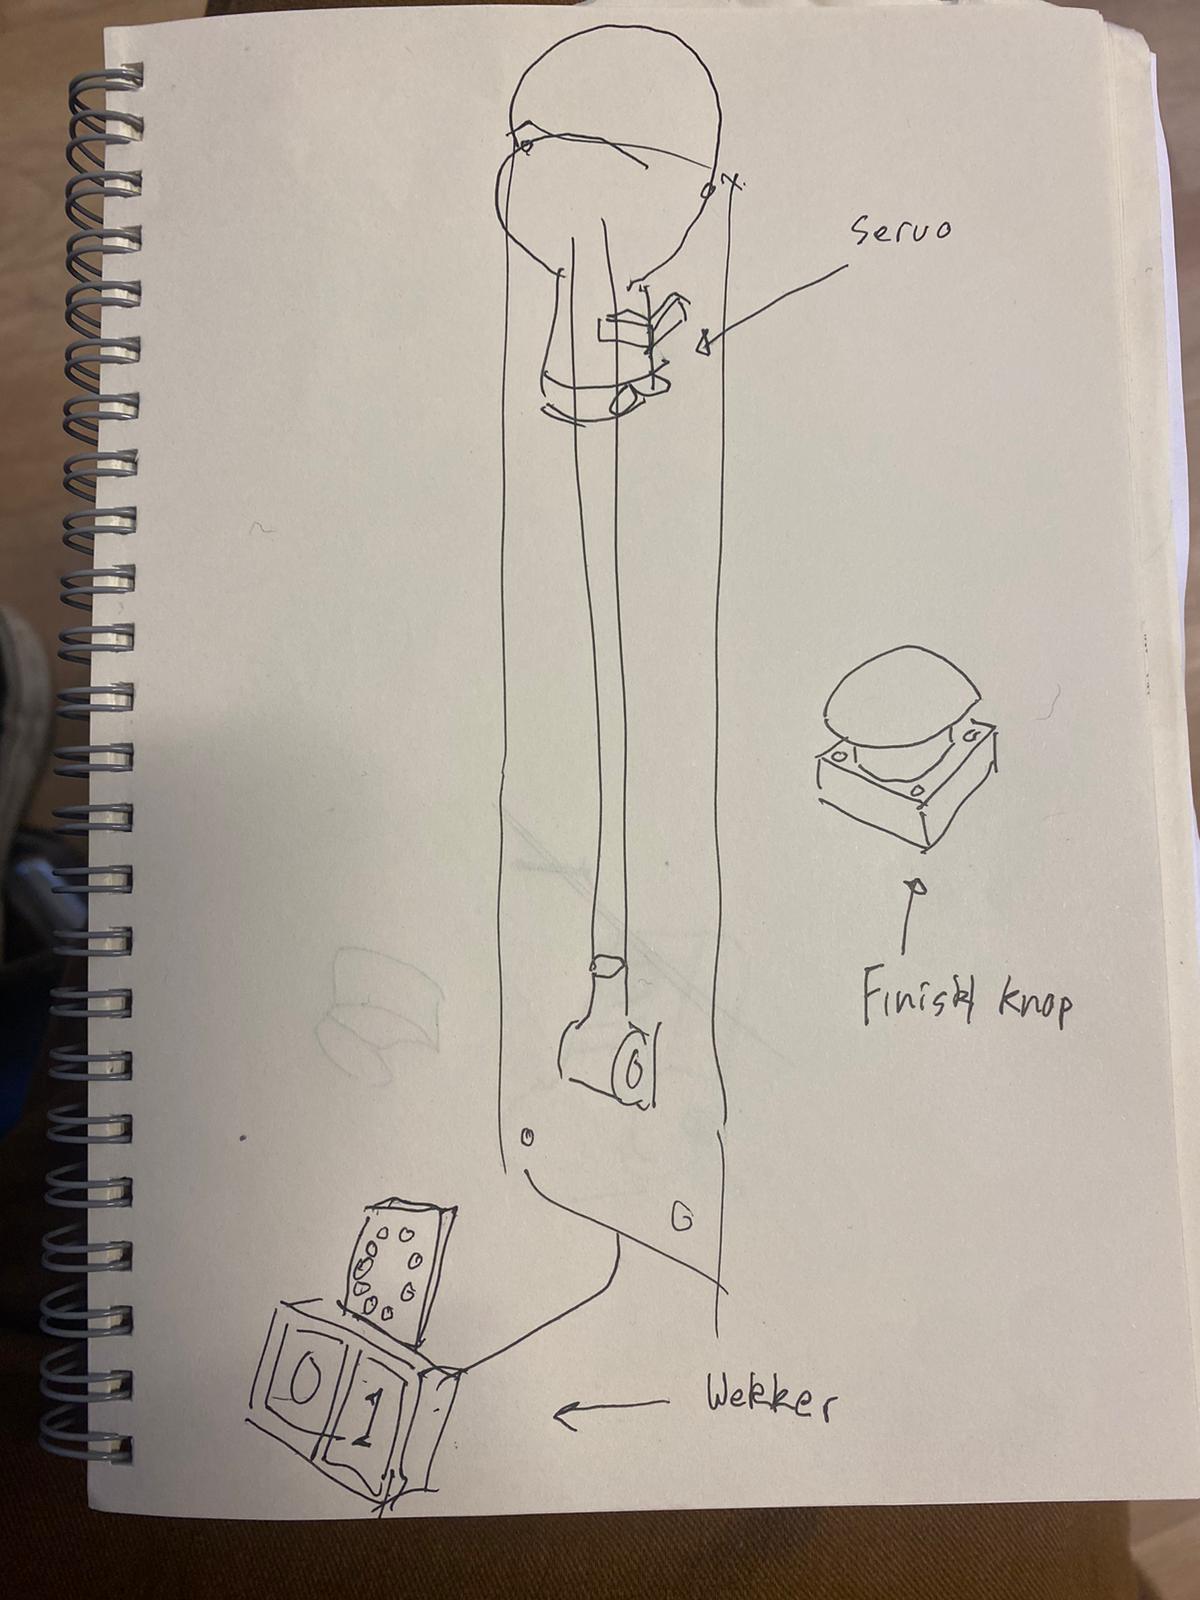 Servo
Finish knop
0 1
Wekker